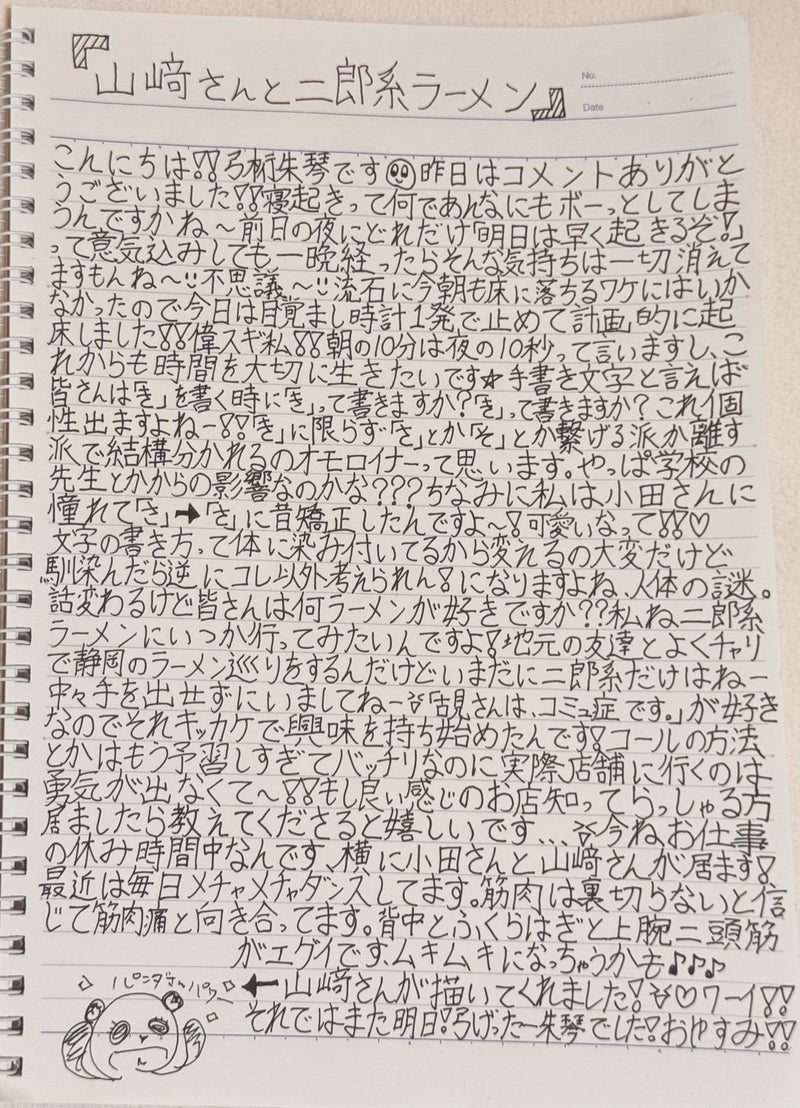 『山﨑さんと二郎系ラーメン』
No.
Date
こんにちは!!弓桁朱琴です☺昨日はコメントありがと
うございました!!寝起きって何であんなにもボーっとしてしま
うんですかね〜前日の夜にどれだけ「明日は早く起きるぞ!」
って意気込みしても一晩経ったらそんな気持ちは一切消えて
ますもんね〜!!不思議〜!!流石に今朝も床に落ちるワケにはいか
なかったので今日は目覚まし時計1発で止めて計画的に起
床しました!!偉スギ私!!朝の10分は夜の10秒って言いますし、こ
れからも時間を大切に生きたいです☆手書き文字と言えば
皆さんは「き」を書く時に「き」って書きますか?「き」って書きますか?これ個
性出ますよねー!!「き」に限らず「さ」とか「そ」とか繋げる派か離す
派で結構分かれるのオモロイナーって思います。やっぱ学校の
先生とかからの影響なのかな???ちなみに私は小田さんに
憧れて「さ」➡「さ」に昔矯正したんですよ〜!可愛いなって!!♡
文字の書き方って体に染み付いてるから変えるの大変だけど
馴染んだら逆にコレ以外考えられん!になりますよね、人体の謎。
話変わるけど皆さんは何ラーメンが好きですか??私ね二郎系
ラーメンにいつか行ってみたいんですよ!地元の友達とよくチャリ
で静岡のラーメン巡りをするんだけどいまだに二郎系だけはねー
中々手を出せずにいましてねー「古見さんは、コミュ症です。」が好き
なのでそれキッカケで興味を持ち始めたんです!コールの方法
とかはもう予習しすぎてバッチリなのに実際店舗に行くのは
勇気が出なくて〜!!もし良い感じのお店知ってらっしゃる方
居ましたら教えてくださると嬉しいです...今ね、お仕事
の休み時間中なんです、横に小田さんと山﨑さんが居ます!
最近は毎日メチャメチャダンスしてます。筋肉は裏切らないと信
じて筋肉痛と向き合ってます。背中とふくらはぎと上腕二頭筋
がエグイです、ムキムキになっちゃうかも♪♪♪
パンダさんパワ〜
⬅山﨑さんが描いてくれました!♡ワーイ!!
それではまた明日!弓げったー朱琴でした!おやすみ!!